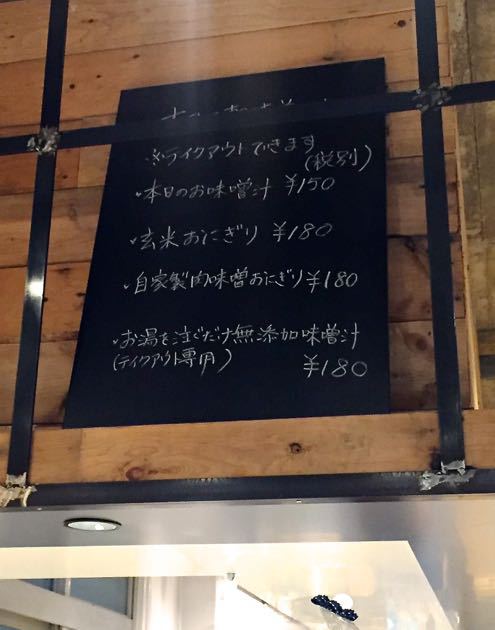 ※テイクアウトできます
(税別)
・本日のお味噌汁 ¥150
・玄米おにぎり ¥180
・自家製肉味噌おにぎり ¥180
・お湯を注ぐだけ無添加味噌汁
(テイクアウト専用)
¥180